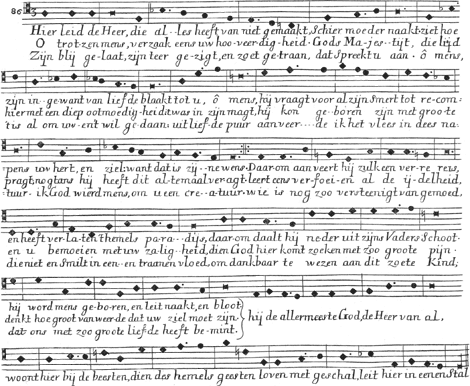 86
Hier leid de Heer, die al..les heeft van niet gemaakt, Schier moeder naakt: ziet hoe
O trotzen mens, verzaak eens uw hooveerdigheid. Gods Majes..tijt, die lijd
Zijn blij gelaat, zijn teer gezigt, en zoet getraan, dat spreekt u aan. ô mens,
zijn ingewant van liefde blaakt tot u, ô mens, hij vraagt voor al zijn smert tot recom-
hier met een diep ootmoedigheid: twas in zijn magt, hij kon geboren zijn met groote
'tis al om uwent wil gedaan: uit liefde puur aanveer....de ik het vlees in dees na-
pens uw hert, en ziel: want dat is zij..ne wens. Daarom aanveert hij zulk een verre reis,
pragt: nogtans hij heeft dit altemaal veragt: leert eens verfoeien al de ijdelheid,
tuur. ik God wierd mens, om u een crea..tuur. wie is nog zoo versteenigt van gemoed,
en heeft verlaten themels para..dijs, daarom daalt hij neder uit zijns Vaders Schoot
en u bemoeien met uw zaligheid, dien God hier komt zoeken met zoo groote pijn.
die niet en Smilt in een en traanen vloed, om dankbaar te wezen aan dit zoete Kind;
hij word mens geboren, en leit naakt, en bloot
denkt hoe groot van weerde dat uw ziel moet zijn
dat ons met zoo groote liefde heeft bemint.
hij de allermeeste God, de Heer van al,
woont hier bij de beesten, dien des hemels geesten loven met geschal, leit hier in eenen Stal